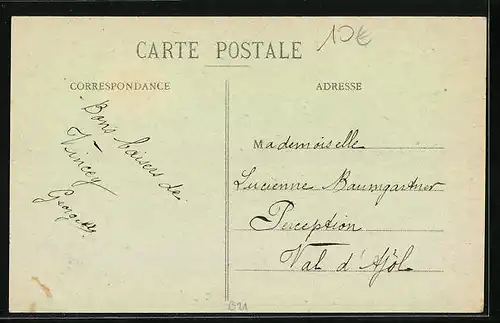 10€
CARTE POSTALE
CORRESPONDANCE
ADRESSE
Bons baisers de
Vincey
Georgette
Mademoiselle
Lucienne Baumgartner
Perception
Val d'Ajol
B21